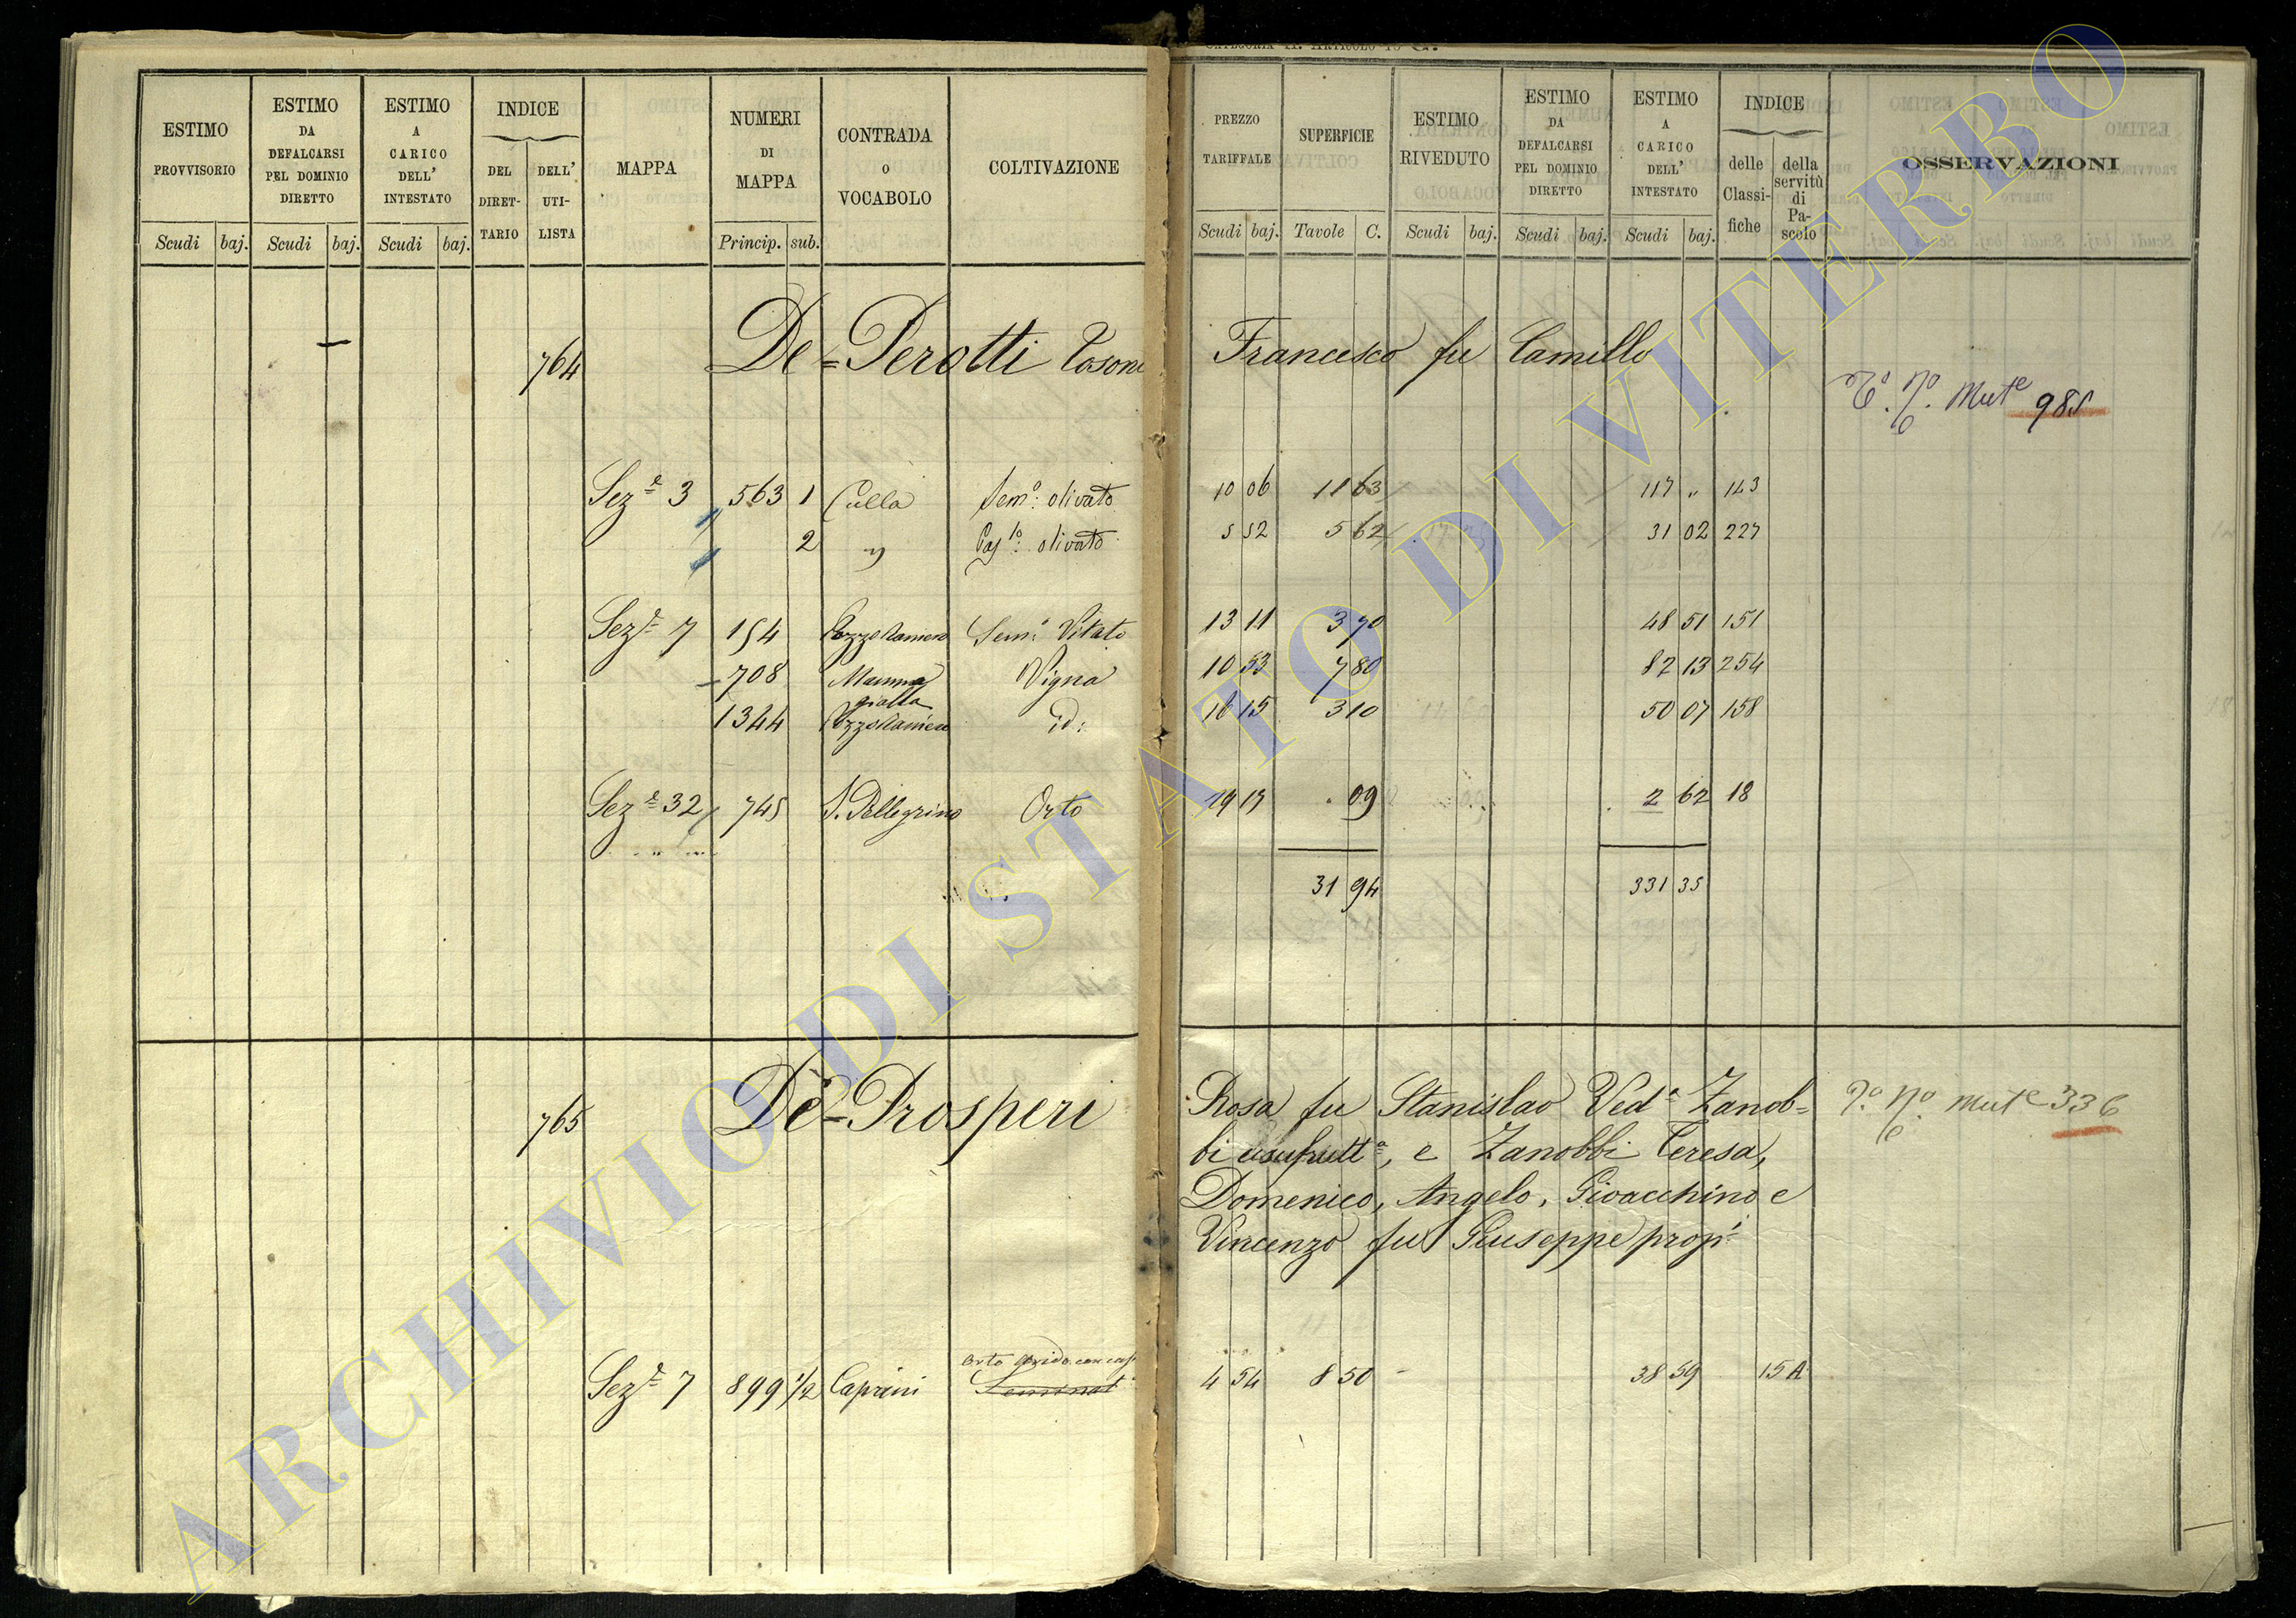 CATEGORIA II. ARTICOLO 10 C.
ESTIMO PROVVISORIO
Scudi baj.
ESTIMO DA DEFALCARSI PEL DOMINIO DIRETTO
Scudi baj.
ESTIMO A CARICO DELL' INTESTATO
Scudi baj.
INDICE
DEL DIRET-TARIO
DELL' UTI-LISTA
MAPPA
NUMERI DI MAPPA
Princip. sub.
CONTRADA o VOCABOLO
COLTIVAZIONE
PREZZO TARIFFALE
Scudi baj.
SUPERFICIE
Tavole C.
ESTIMO RIVEDUTO
Scudi baj.
ESTIMO DA DEFALCARSI PEL DOMINIO DIRETTO
Scudi baj.
ESTIMO A CARICO DELL' INTESTATO
Scudi baj.
INDICE
delle Classi-fiche
della servitù di Pa-scolo
OSSERVAZIONI
764 De=Perotti Francesco fu Camillo
Mut.e 985
Sez.e 3 563 1 Culla Sem.o olivato 10 06 11 63 117 " 143
2 " Pas.lo olivato 5 52 5 62 31 02 227
Sez.e 7 154 Pozzo Raniero Sem.o Vitato 13 11 3 70 48 51 151
708 Mamma gialla Vigna 10 53 7 80 82 13 254
1344 Pozzo Raniero id: 16 15 3 10 50 07 158
Sez.e 32 745 S. Pellegrino Orto 29 13 . 09 2 62 18
31 94 331 35
765 De=Prosperi Rosa fu Stanislao Ved.a Zanob=
bi usufrutt.a, e Zanobbi Teresa,
Domenico, Angelo, Gioacchino e
Vincenzo fu Giuseppe prop.i
Mut.e 336
Sez.e 7 899 1/2 Caprini Orto arido con casa
Seminat 4 54 8 50 38 59 15 A
ARCHIVIO DI STATO DI VITERBO